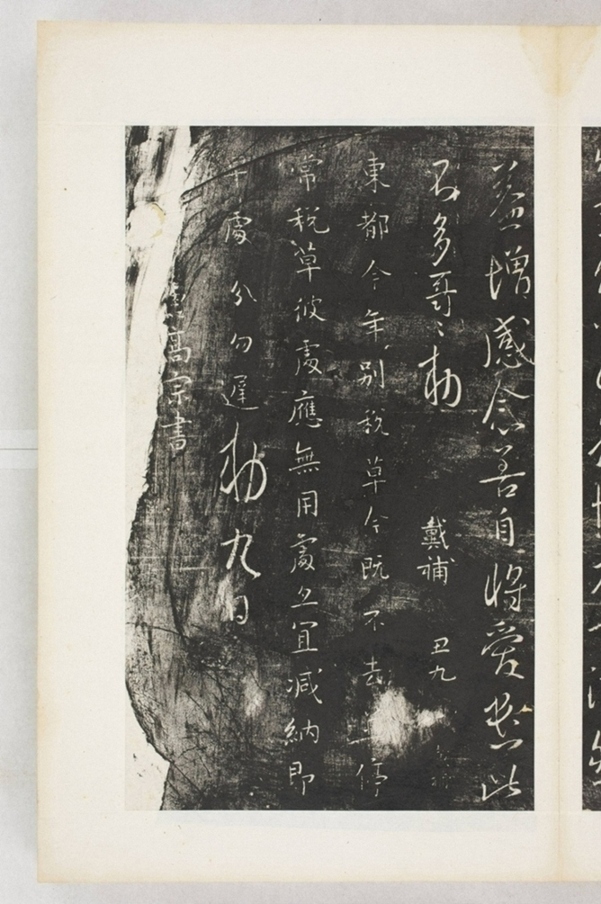 益增感念善自將愛遣此
不多哥〻勅 戴補 丑九
東都今年別稅草今既不去停
常稅草彼處應無用處宜減納即
處分勿遲勅九日
高宗書